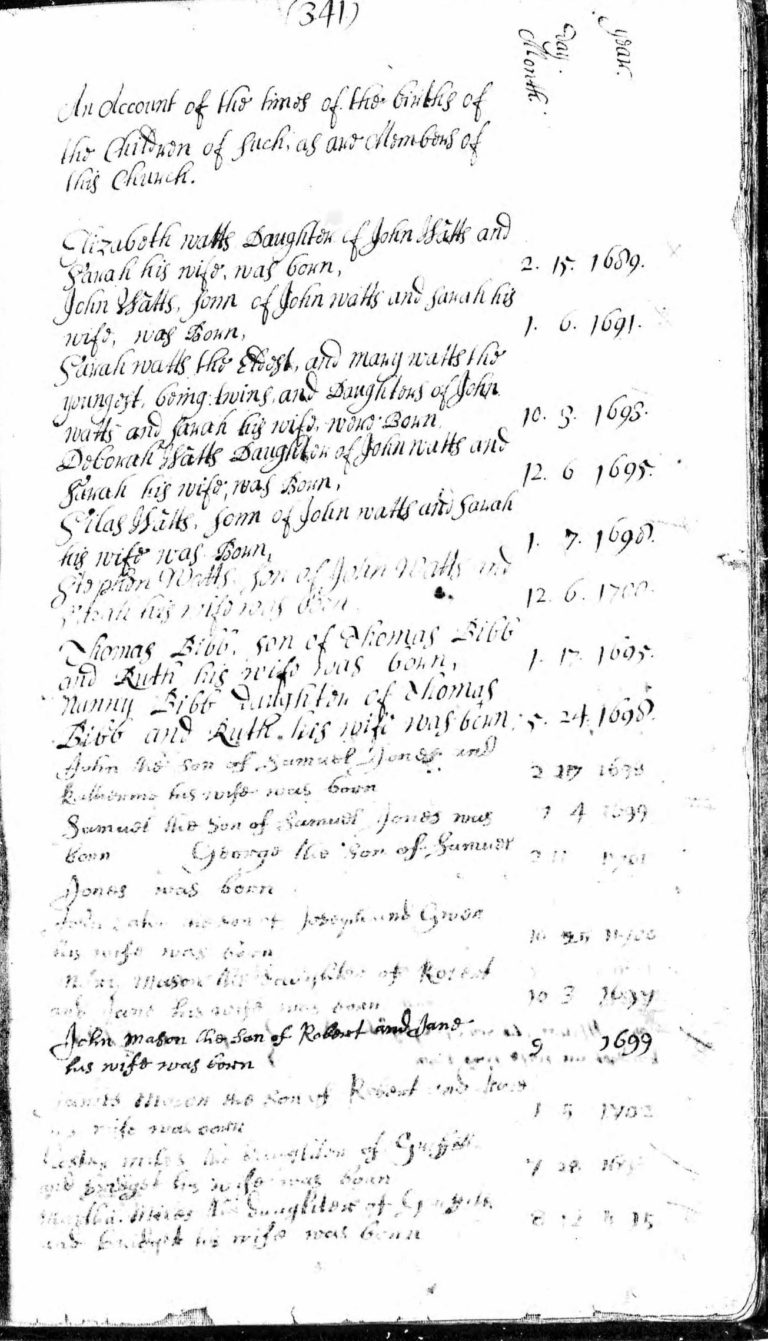 (341)
Month. Day. Year.
An Account of the times of the births of
the Children of such, as are Members of
this Church.
Elizabeth watts Daughter of John Watts and
Sarah his wife, was born, 2. 15. 1689.
John Watts, sonn of John watts and sarah his
wife, was Born, 1. 6. 1691.
Sarah watts the Eldest, and mary watts the
youngest, being twins, and Daughters of John
watts and sarah his wife, were Born 10. 3. 1693.
Deborah Watts Daughter of John watts and
Sarah his wife, was Born, 12. 6 1695.
Silas Watts, sonn of John watts and Sarah
his wife was Born, 1. 7. 1698.
Stephen Watts son of John Watts and
Sarah his wife was born 12. 6. 1700.
Thomas Bibb, son of Thomas Bibb
and Ruth his wife was born, 1. 17. 1695.
Nanny Bibb daughter of Thomas
Bibb and Ruth his wife was born, 5. 24. 1698.
John the son of Samuel Jones and
Katherine his wife was born 2
Samuel the Son of Samuel Jones was 4 1699
born George the Son of Samuel
Jones was born
the son of Joseph and Gwen
his wife was born
Mason the daughter of Robert
and Jane his wife was born 10 3
John mason the son of Robert and Jane
his wife was born 9 1699
James Mason the son of Robert and Jane
his wife was born 1 5 1702
the daughter of
and Bridget his wife was born
Martha Miles the daughter of
and Bridget his wife was born 8